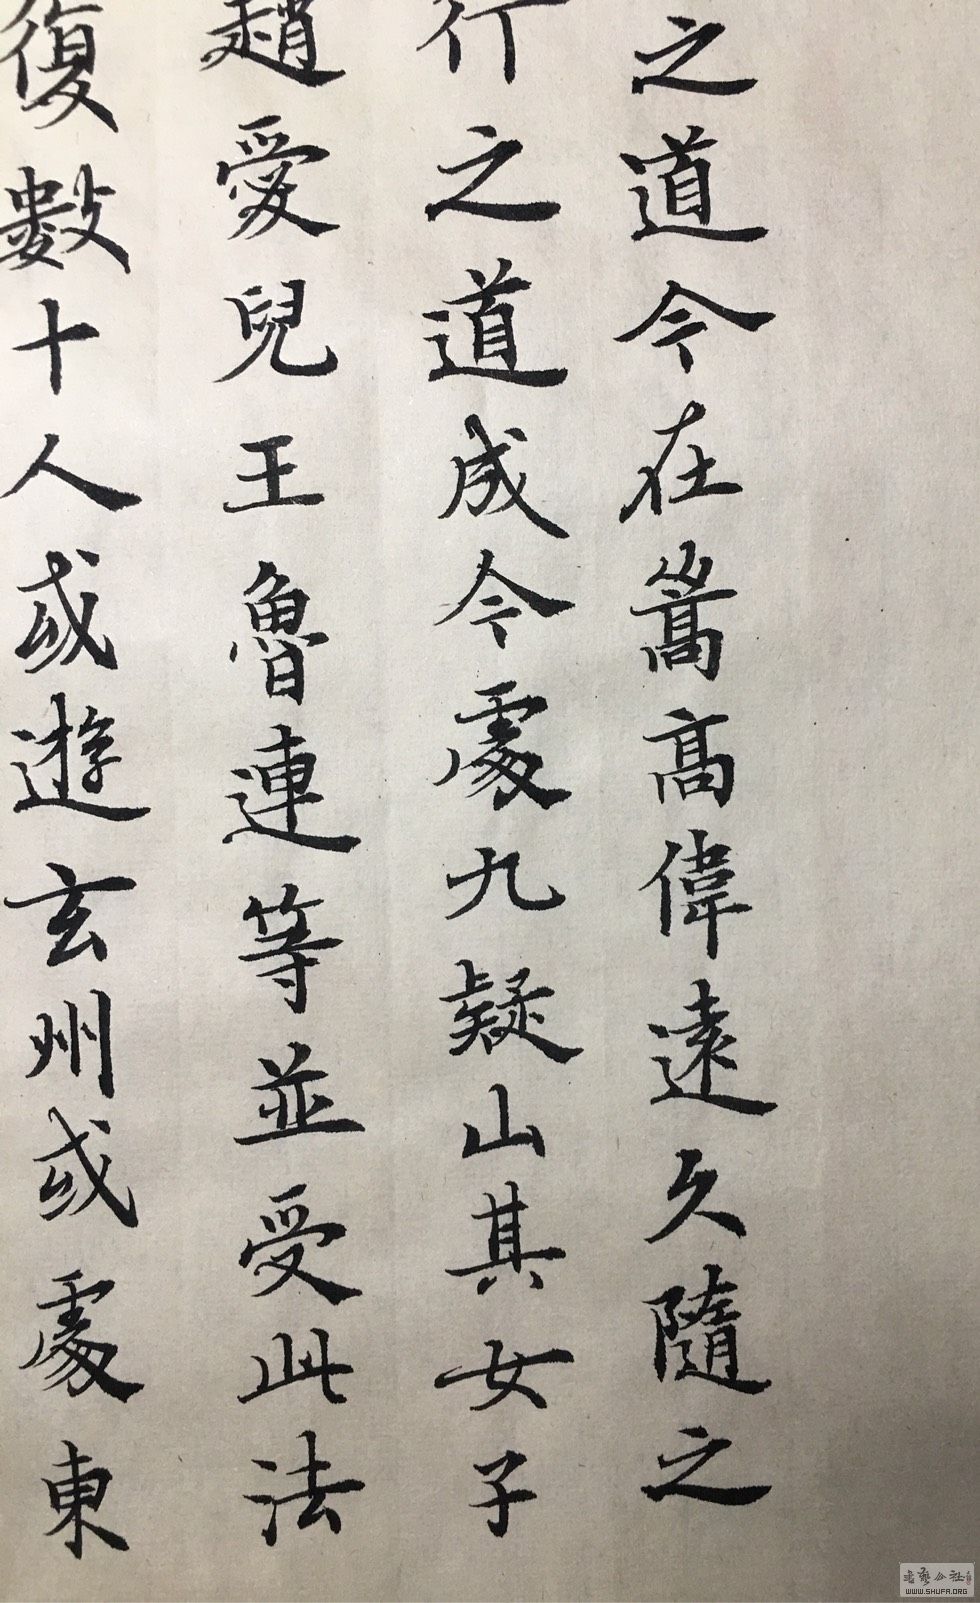 之道今在嵩高偉遠久隨之
行之道成今處九疑山其女子
趙愛兒王魯連等並受此法
復數十人或遊玄州或處東
書藝公社
WWW.SHUFA.ORG